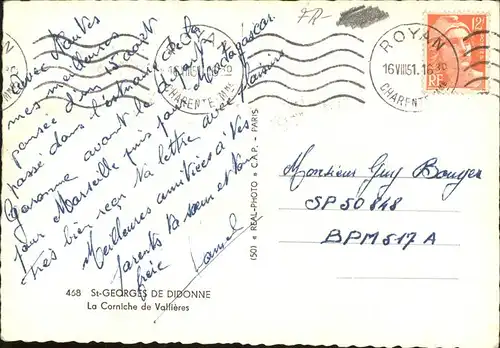 FR-
Avec toutes
mes meilleures
pensées du 15 août
passé dans l'estuaire de la
Garonne avant le départ
pour Marseille puis pour Madagascar.
très bien reçu ta lettre avec plaisir
Meilleures amitiées à tes
parents ta sœur et ton
frère
468 St-GEORGES DE DIDONNE
La Corniche de Vallières
(50) « REAL-PHOTO » C.A.P. - PARIS
ROYAN
CHARENTE-Mme
ROYAN
16 VIII 51. 16 30
CHARENTE-Mme
12F
RF
Monsieur Guy Bouges
SP 50 848
BPM 517 A